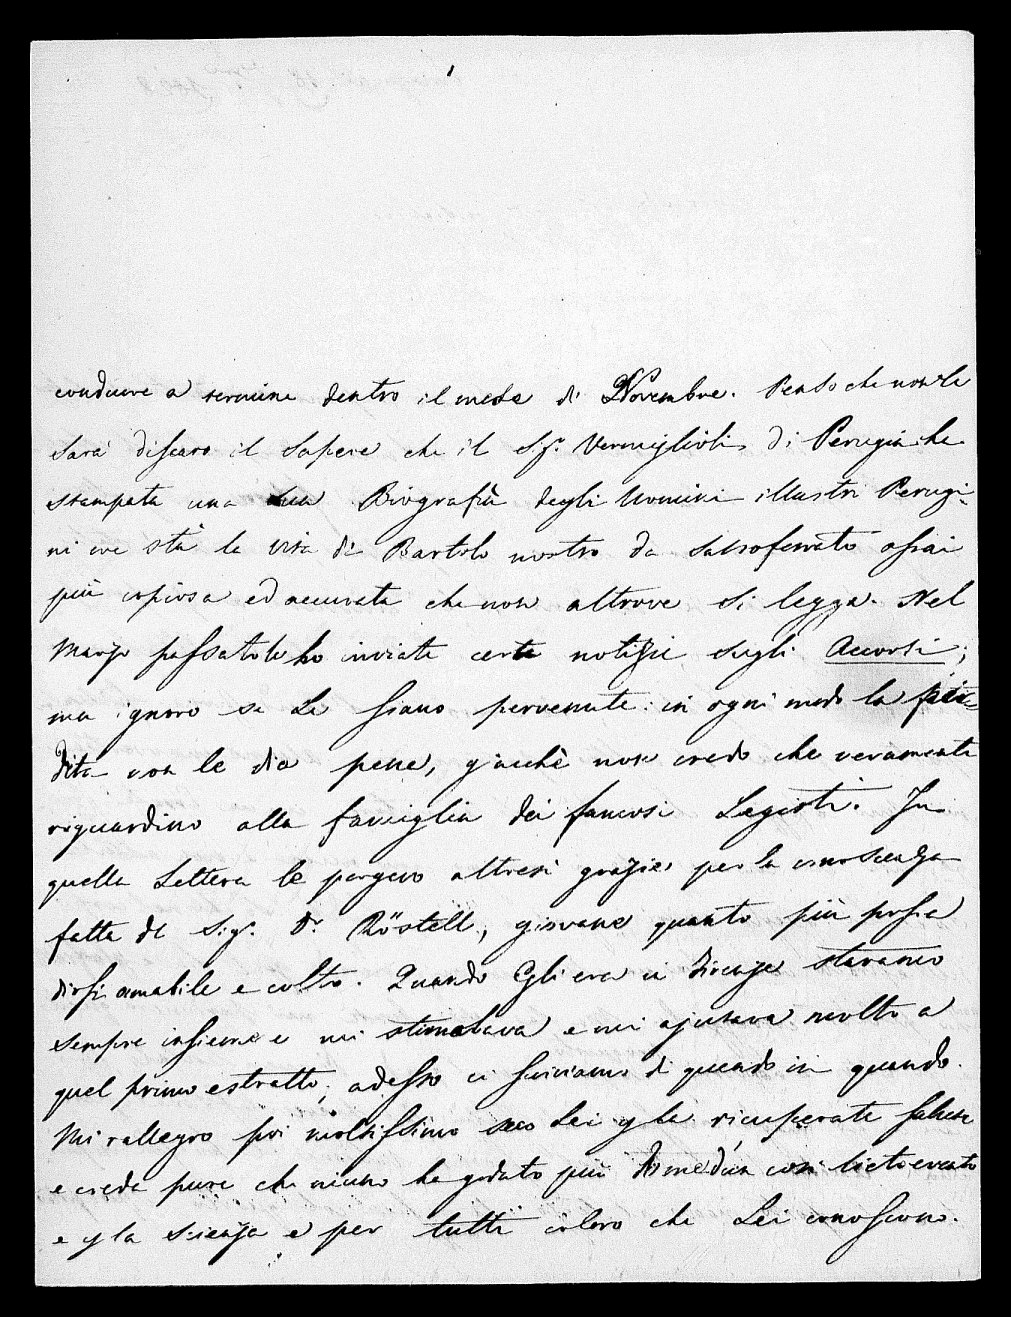 condurre a termine dentro il mese di Novembre. Penso che non le
sarà discaro il sapere che il Sig.r Vermiglioli di Perugia ha
stampata una sua Biografia degli Uomini illustri Perugi-
ni ove stà la vita di Bartolo nostro da Sassoferrato assai
più copiosa ed accurata che non altrove si legga. Nel
Marzo passato le ho inviate certe notizie sugli Accorsi;
ma ignoro se Le siano pervenute: in ogni modo la
dita non le dia pene, giacchè non credo che veramente
riguardino alla famiglia dei famosi Legisti. In
quella Lettera le porgevo altresì grazie per la conoscenza
fatta del Sig.r D.r Röstell, giovane quanto più possa
dirsi amabile e colto. Quando Egli era in Firenze stavamo
sempre insieme e mi stimolava e mi ajutava molto a
quel primo estratto; adesso ci scriviamo di quando in quando.
Mi rallegro poi moltissimo seco Lei p le ricuperate salute
e creda pure che niuno ha goduto più di me d'un così lieto evento
e p la scienza e per tutti coloro che Lei conoscono.